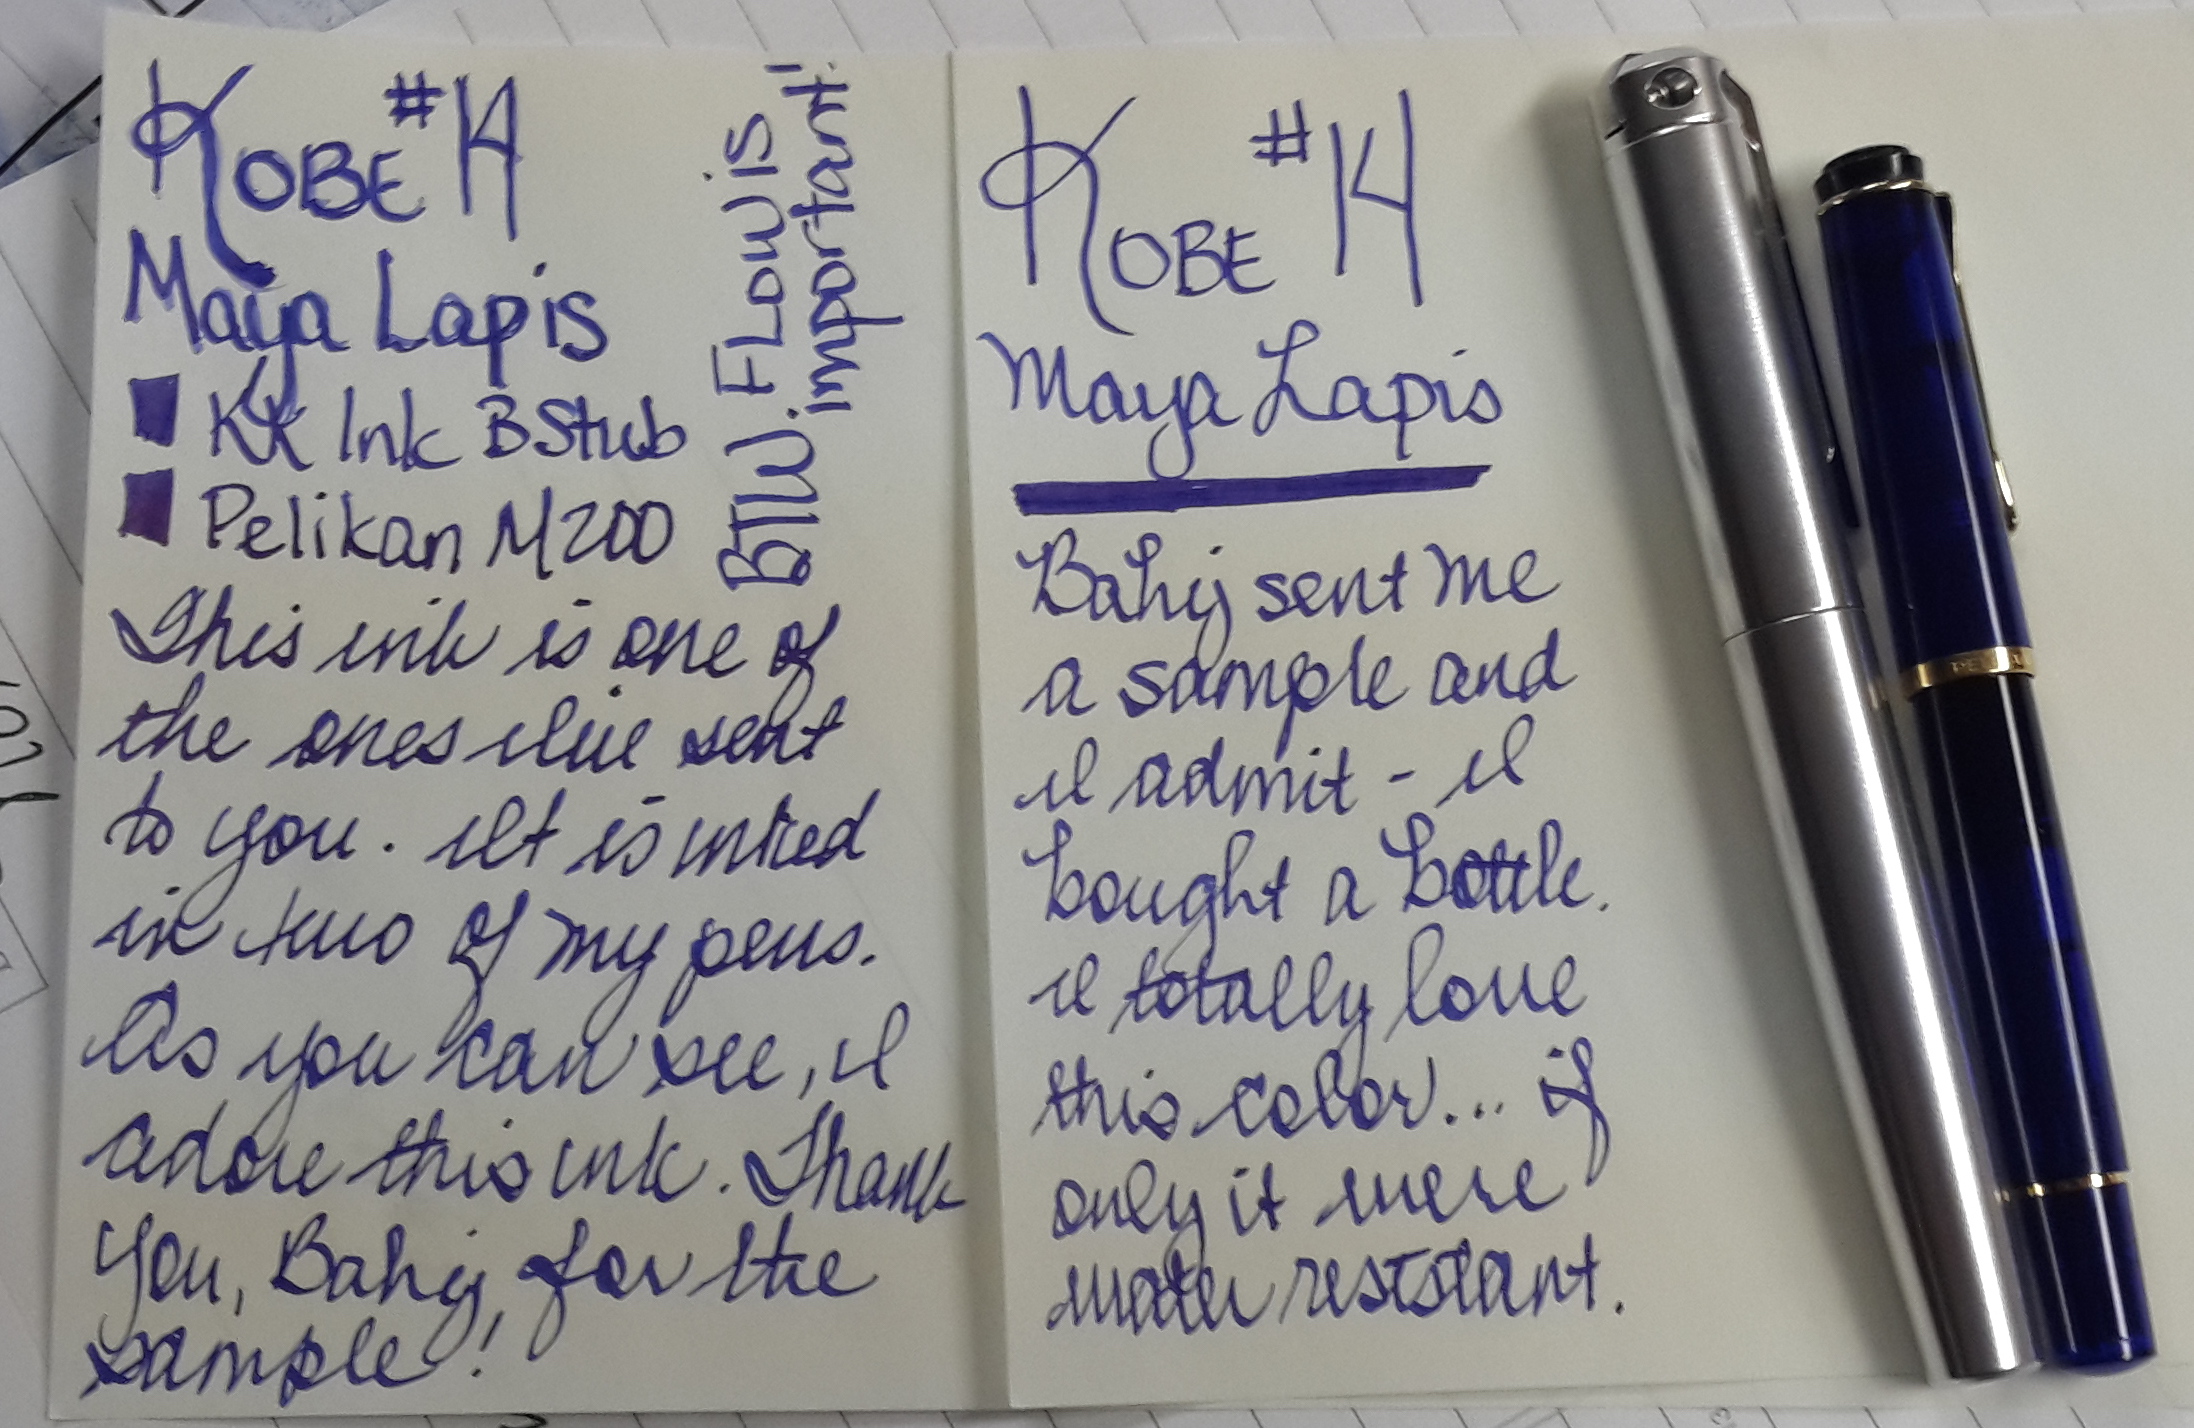 KOBE #14
Maya Lapis
KK Ink B Stub
Pelikan M200
BTW. Flow is
important!
This ink is one of
the ones I've sent
to you. It is inked
in two of my pens.
As you can see, I
adore this ink. Thank
you, Bahij, for the
sample!
KOBE #14
Maya Lapis
Bahij sent me
a sample and
I admit - I
bought a bottle.
I totally love
this color... if
only it were
water resistant.